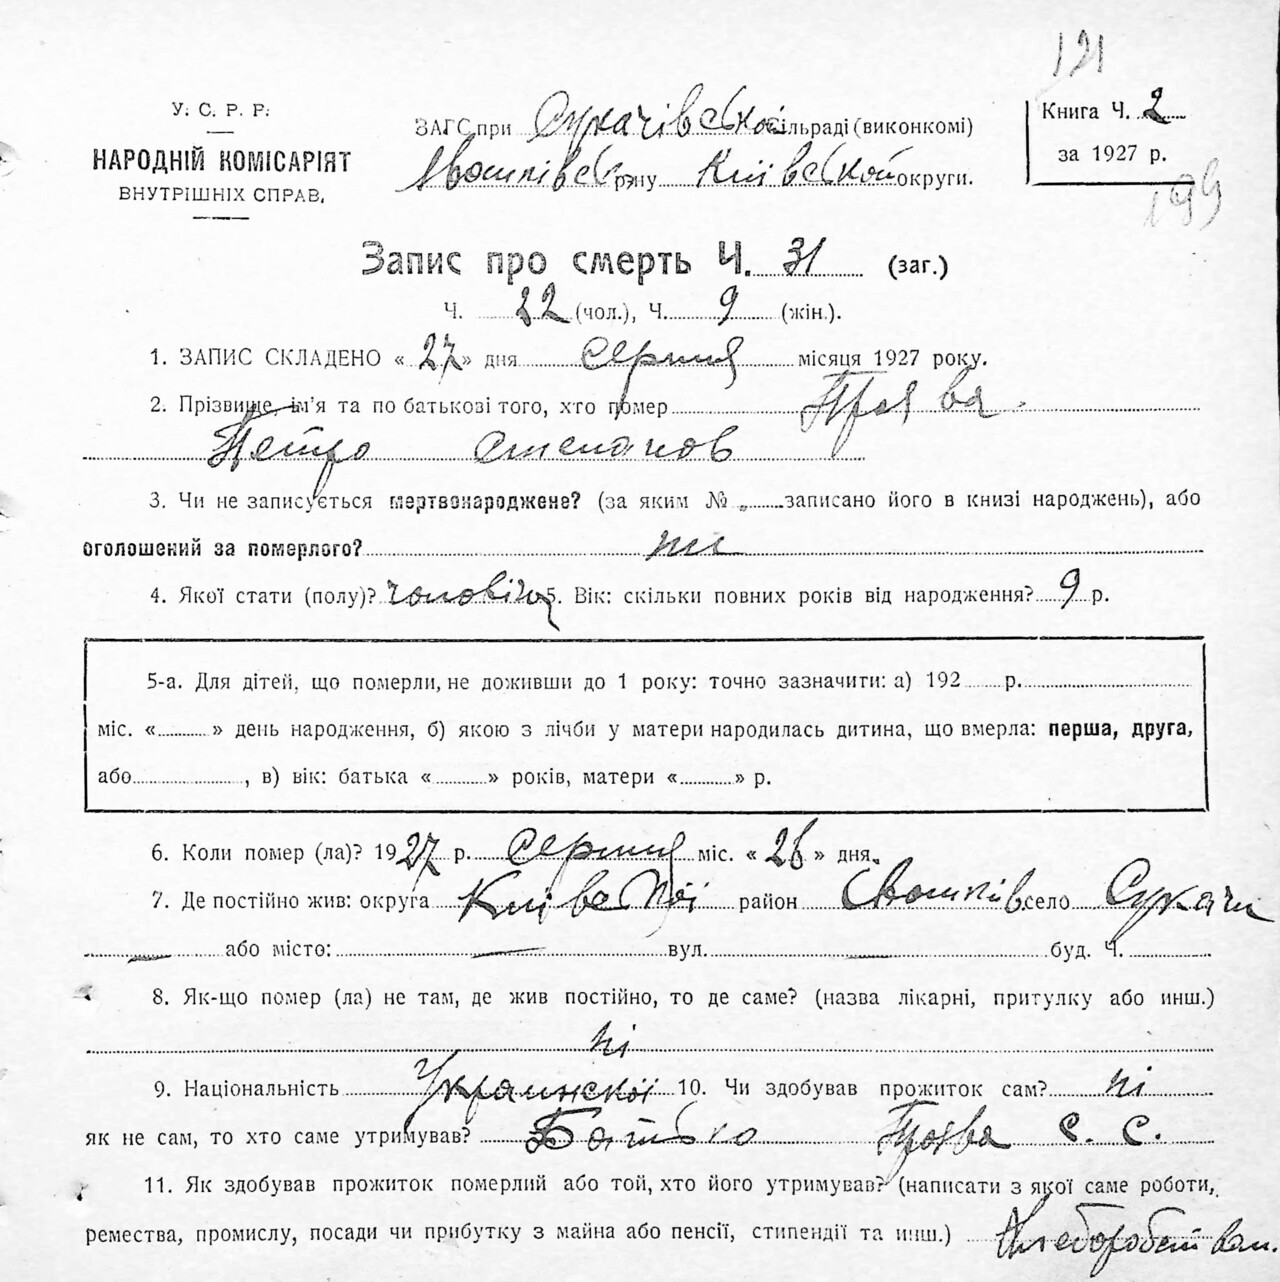 121
У. С. Р. Р.
НАРОДНІЙ КОМІСАРІЯТ
ВНУТРІШНІХ СПРАВ.
ЗАГС при Сукачівській сільраді (виконкомі)
р-ну Київської округи.
Книга Ч. 2
за 1927 р.
199
Запис про смерть Ч. 31 (заг.)
Ч. 22 (чол.), Ч. 9 (жін.).
1. ЗАПИС СКЛАДЕНО « 27 » дня серпня місяця 1927 року.
2. Прізвище ім’я та по батькові того, хто помер Проява
Петро Степанов
3. Чи не записується мертвонароджене? (за яким № записано його в книзі народжень), або
оголошений за померлого? ни
4. Якої стати (полу)? чоловіча 5. Вік: скільки повних років від народження? 9 р.
5-а. Для дітей, що померли, не доживши до 1 року: точно зазначити: а) 192 р.
міс. « » день народження, б) якою з лічби у матери народилась дитина, що вмерла: перша, друга,
або , в) вік: батька « » років, матери « » р.
6. Коли помер (ла)? 1927 р. серпня міс. « 26 » дня.
7. Де постійно жив: округа Київської район село Сукачи
або місто: — вул. — буд. Ч.
8. Як-що помер (ла) не там, де жив постійно, то де саме? (назва лікарні, притулку або инш.)
ні
9. Національність Украинскої 10. Чи здобував прожиток сам? ні
як не сам, то хто саме утримував? Батько Проява С. С.
11. Як здобував прожиток померлий або той, хто його утримував? (написати з якої саме роботи,
ремества, промислу, посади чи прибутку з майна або пенсії, стипендії та инш.)